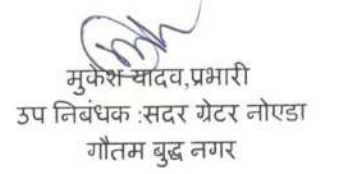 मुकेश यादव,प्रभारी
उप निबंधक :सदर ग्रेटर नोएडा
गौतम बुद्ध नगर